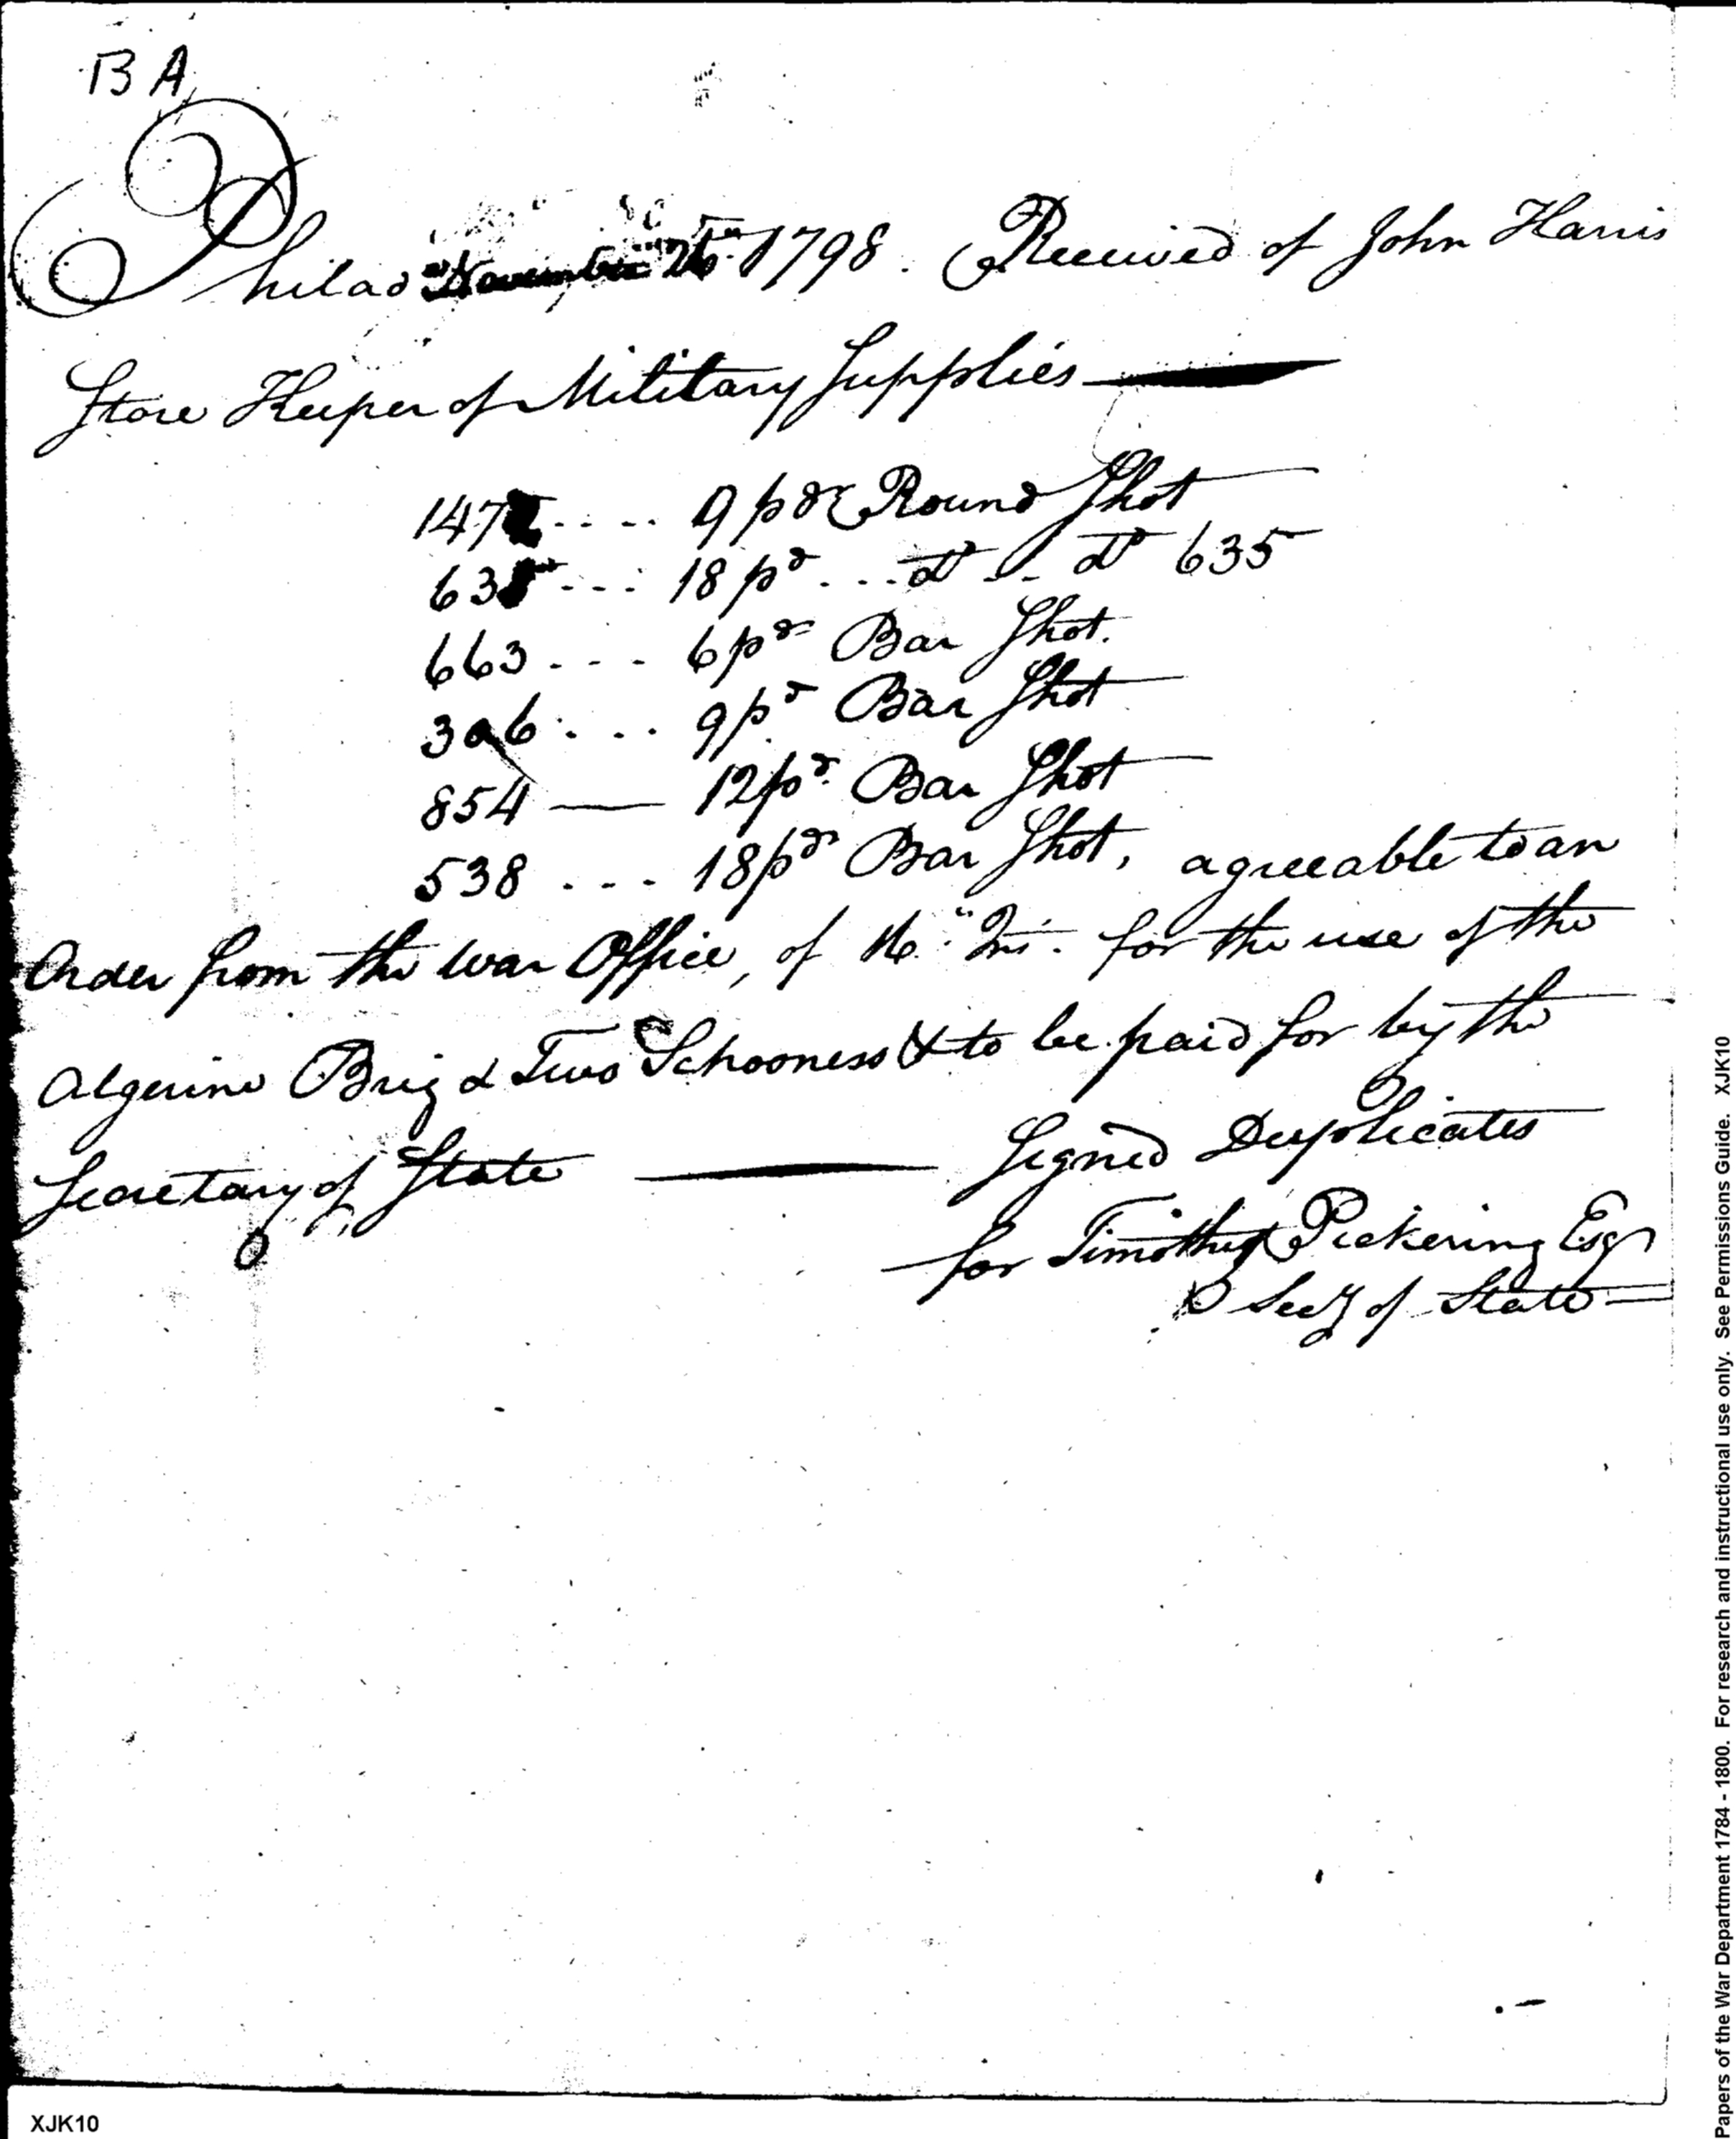 BA
Philad November 26th 1798. Received of John Harris
Store Keeper of Military Supplies
147 .... 9 pdr Round Shot
635 .... 18 pd ... do .. do 635
663 ... 6 pdr Bar Shot.
306 .... 9 pr Bar Shot
854 — 12 pr Bar Shot
538 ... 18 pdr Bar Shot, agreeable to an
Order from the War Office, of 16" Ins. for the use of the
Algerine Brig & Two Schooners & to be paid for by the
Secretary of State — Signed Duplicates
for Timothy Pickering Esqr
Secy of State
XJK10
Papers of the War Department 1784 - 1800. For research and instructional use only. See Permissions Guide. XJK10